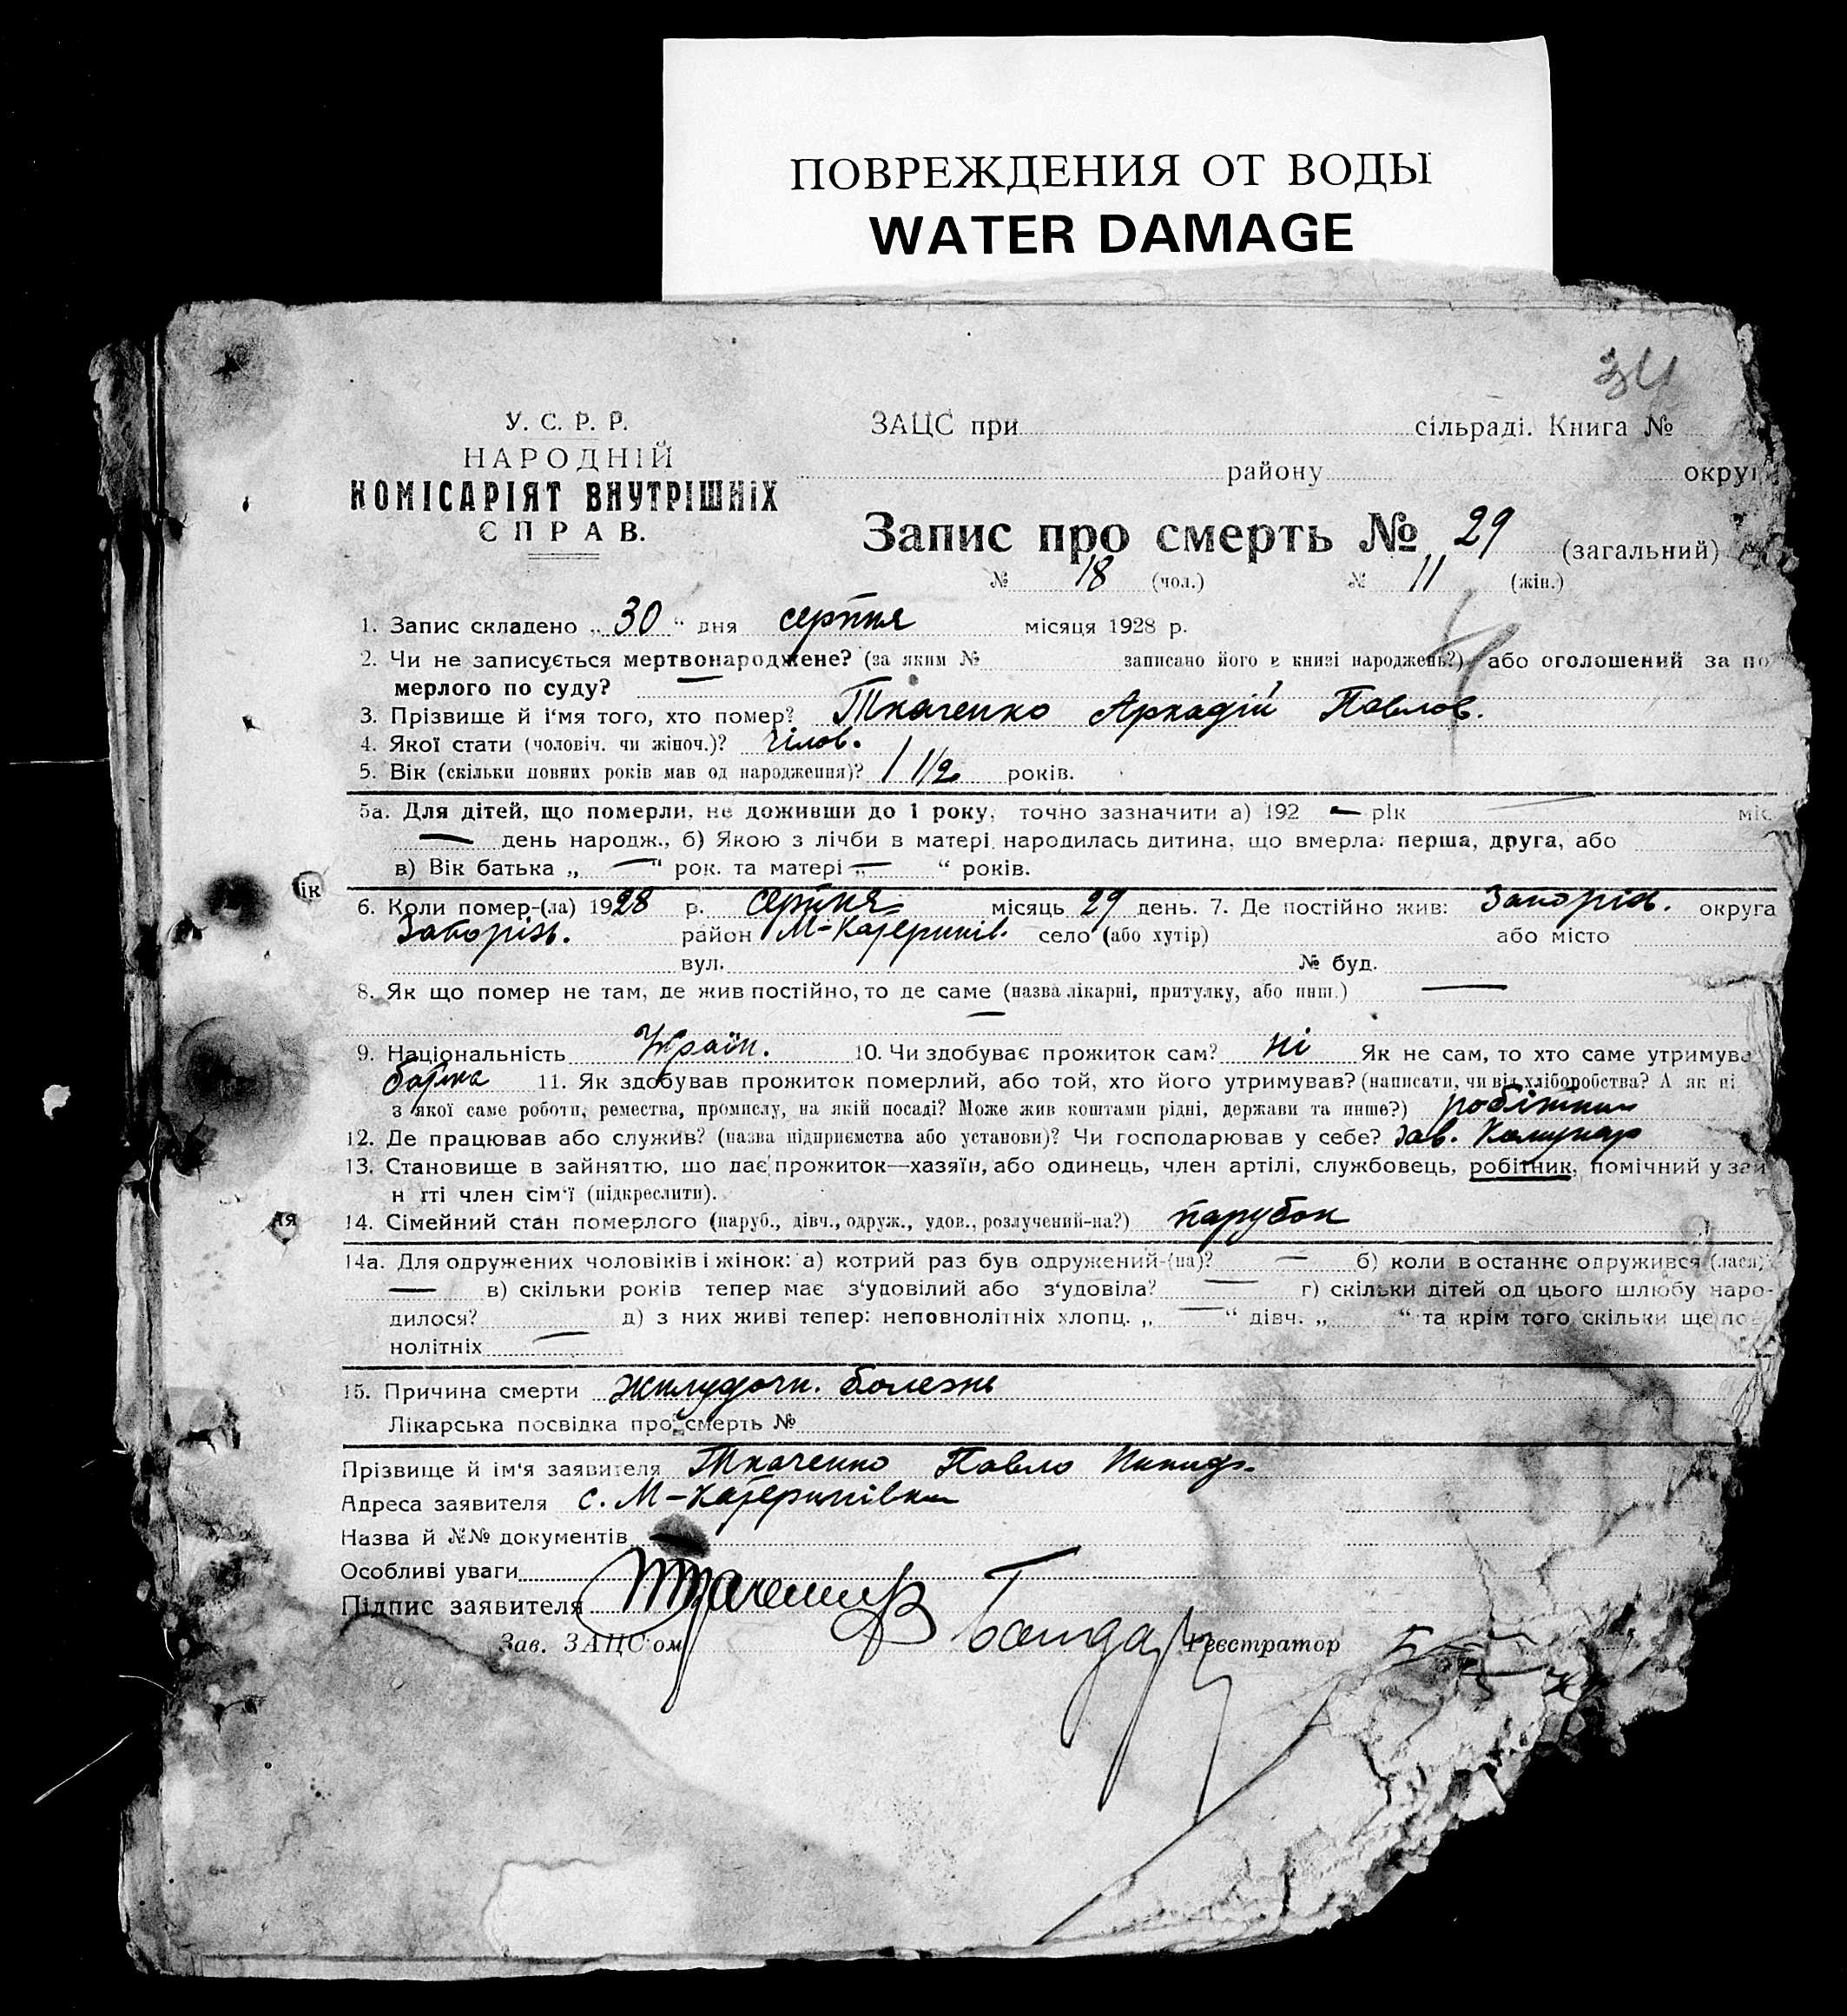 ПОВРЕЖДЕНИЯ ОТ ВОДЫ
WATER DAMAGE
34
У. С. Р. Р.
НАРОДНІЙ
КОМІСАРІЯТ ВНУТРІШНІХ
СПРАВ.
ЗАЦС при сільраді. Книга №
району округ
Запис про смерть № 29 (загальний)
№ 18 (чол.) № 11 (жін.)
1. Запис складено „30“ дня серпня місяця 1928 р.
2. Чи не записується мертвонароджене? (за яким № записано його в книзі народжень?) або оголошений за по
мерлого по суду? —
3. Прізвище й і'мя того, хто помер? Ткаченко Аркадій Павлов.
4. Якої стати (чоловіч. чи жіноч.)? чілов.
5. Вік (скільки повних років мав од народження)? 1 1/2 років.
5а. Для дітей, що померли, не доживши до 1 року, точно зазначити а) 192 — рік міс.
— день народж., б) Якою з лічби в матері народилась дитина, що вмерла: перша, друга, або
в) Вік батька „—“ рок. та матері „—“ років.
ік
6. Коли помер-(ла) 1928 р. серпня місяць 29 день. 7. Де постійно жив: Запоріз. округа
Запоріз. район М-Катеринів. село (або хутір) або місто
вул. № буд.
8. Як що помер не там, де жив постійно, то де саме (назва лікарні, притулку, або инш.) —
—
9. Національність Україн. 10. Чи здобуває прожиток сам? ні Як не сам, то хто саме утримува
батько 11. Як здобував прожиток померлий, або той, хто його утримував? (написати, чи від хліборобства? А як ні
з якої саме роботи, ремества, промислу, на якій посаді? Може жив коштами рідні, держави та инше?) робітник
12. Де працював або служив? (назва підприємства або установи)? Чи господарював у себе? Зав. Комунар
13. Становище в зайняттю, що дає прожиток—хазяїн, або одинець, член артілі, службовець, робітник, помічний у зай
н тті член сім'ї (підкреслити).
ня
14. Сімейний стан померлого (паруб., дівч., одруж., удов., розлучений-на?) парубок
14а. Для одружених чоловіків і жінок: а) котрий раз був одружений-(на)? — б) коли в останнє одружився (лася)?
— в) скільки років тепер має з'уповілий або з'удовіла? — г) скільки дітей од цього шлюбу наро-
дилося? д) з них живі тепер: неповнолітніх хлопц. „—“ дівч. „ “ та крім того скільки ще пов
нолітніх —
15. Причина смерти жилудочн. болезнь
Лікарська посвідка про смерть №
Прізвище й ім'я заявителя Ткаченко Павло
Адреса заявителя с. М-Катеринівка
Назва й №№ документів
Особливі уваги
Підпис заявителя
Зав. ЗАЦС'ом Реєстратор